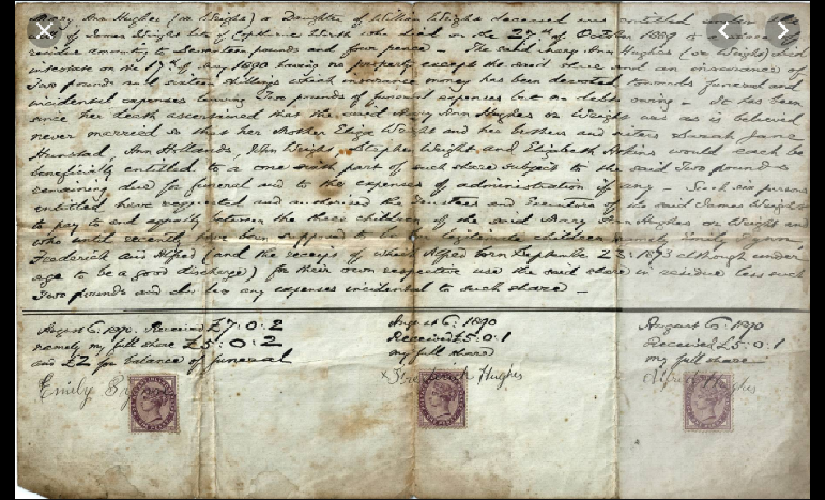 Mary Ann Hughes (or Wright) a Daughter of William Wright deceased was entitled under the
of James Wright late of who died on the 27th of October 1889 a
residue amounting to Seventeen pounds and four pence – The said Mary Ann Hughes (or Wright) died
intestate on the 17th of 1890 having no property except the said share and an insurance of
Two pounds and sixteen shillings which insurance money has been devoted towards funeral and
incidental expenses leaving Two pounds of funeral expenses but no debts owing – It has been
since her death ascertained that the said Mary Ann Hughes or Wright was as is believed
never married so that her Mother Eliza Wright and her brothers and sisters Sarah Jane
Ann John Wright, Stephen Wright and Elizabeth would each be
beneficially entitled to a one sixth part of such share subject to the said Two pounds
remaining due for funeral and to the expenses of administration if any – Such six persons
entitled have requested and authorised the Trustees and Executors of the said James Wright
to pay to and equally between the three children of the said Mary Ann Hughes or Wright and
who until recently have been supposed to be her legitimate children namely Emily
Frederick and Alfred (and the receipt of which Alfred born September 23: 1873 although under
age to be a good discharge) for their own respective use the said share in residue less such
Two pounds and also less any expenses incidental to such share –
August 6: 1890. Received £7:0:2
namely my full share £5:0:2
and £2 for balance of funeral
Emily
August 6: 1890
Received £5:0:1
my full share
Frederick Hughes
August 6: 1890
Received £5:0:1
my full share
Alfred Hughes